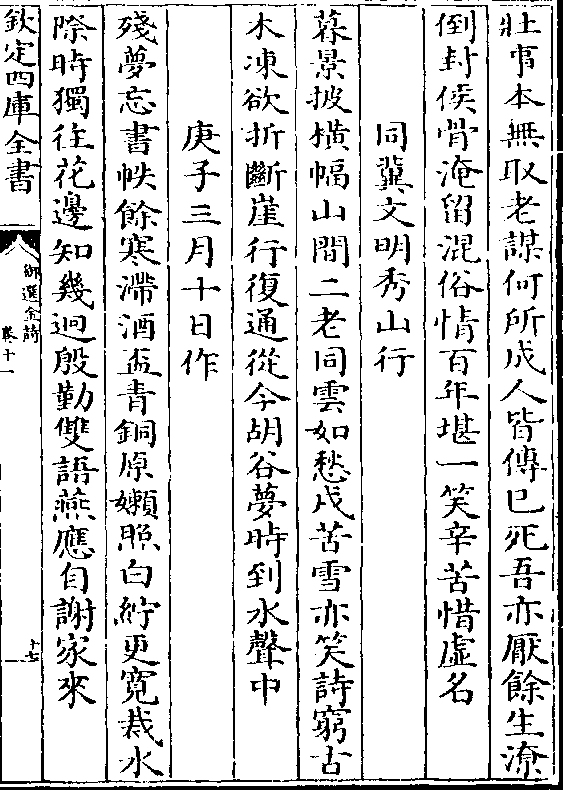 壯事本無取老謀何所成人皆傳已死吾亦厭餘生潦
倒封侯骨淹留混俗情百年堪一笑辛苦惜虛名
同冀文明秀山行
暮景披橫幅山間二老同雲如愁戍苦雪亦笑詩窮古
木凍欲折斷崖行復通從今胡谷夢時到水聲中
庚子三月十日作
殘夢忘書帙餘寒滯酒盃青銅原嬾照白紵更寛裁水
際時獨往花邊知幾迴殷勤雙語燕應自謝家來
欽定四庫全書
御選金詩
卷十一
十七